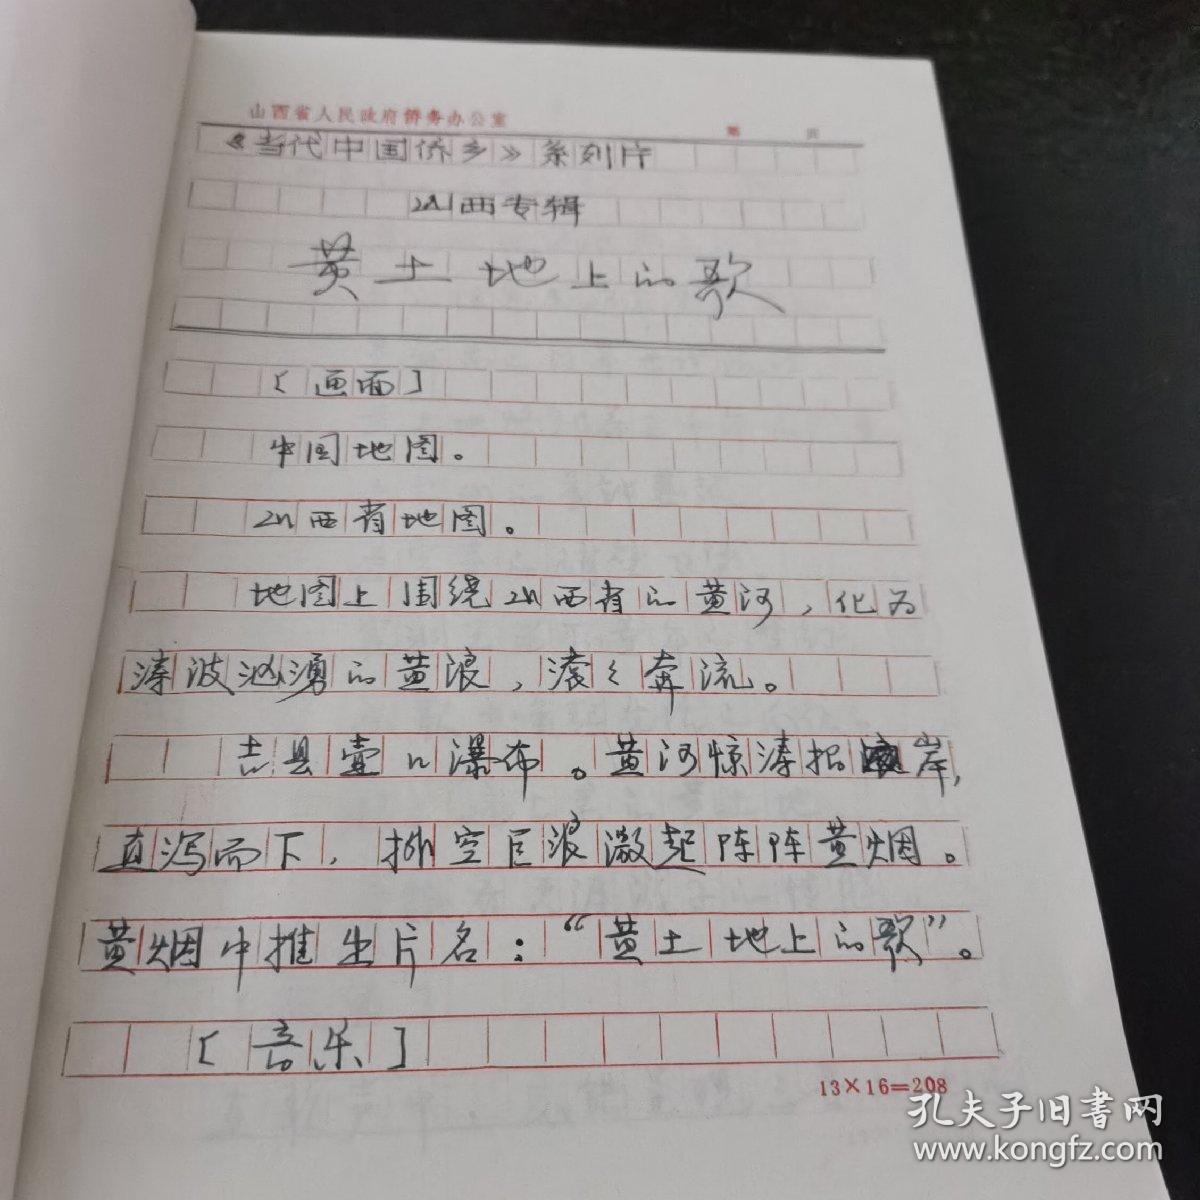 山西省人民政府侨务办公室 第 页
《当代中国侨乡》系列片
山西专辑
黄土地上的歌
［画面］
中国地图。
山西省地图。
地图上围绕山西省的黄河，化为
涛波汹湧的黄浪，滚々奔流。
吉县壶口瀑布。黄河惊涛拍岸，
直泻而下，排空巨浪激起阵阵黄烟。
黄烟中推出片名：“黄土地上的歌”。
［音乐］
13×16=208
孔夫子旧书网
www.kongfz.com